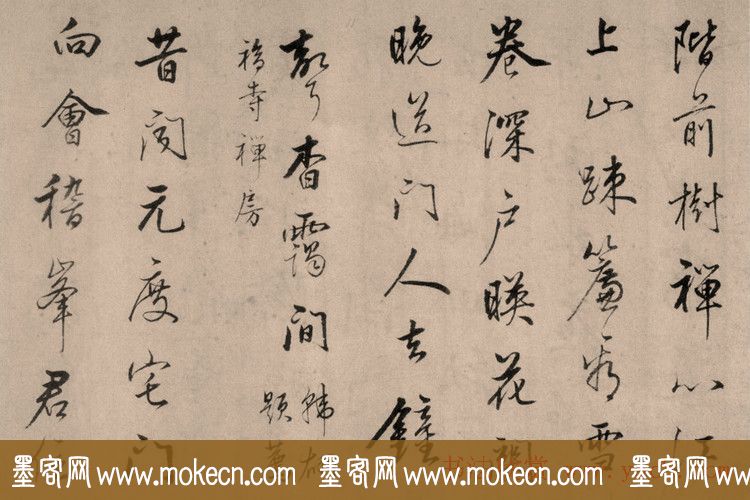 階前樹禪心江
上山疎簾看雪
卷深戶暎花關
晚送門人去鐘
聲杳靄間 韓
題薦
福寺禪房
昔聞元度宅門
向會稽峯君
墨客网www.mokecn.com 墨客网www.mokecn.com 墨客网www.mokecn.com